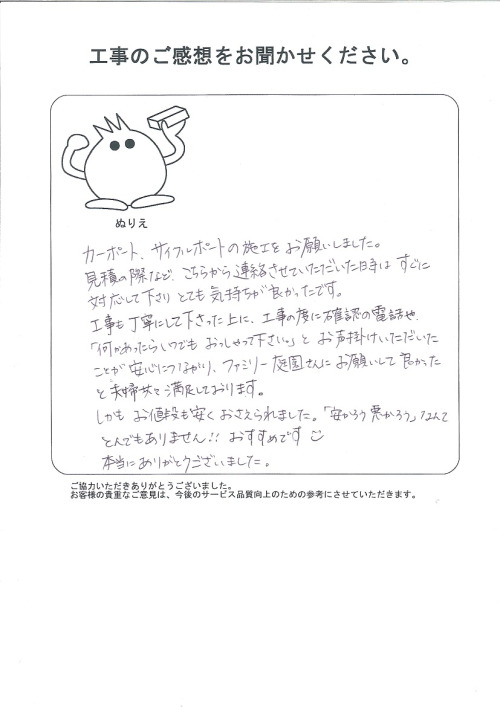 工事のご感想をお聞かせください。
ぬりえ
カーポート、サイクルポートの施工をお願いしました。
見積の際など、こちらから連絡させていただいた時は すぐに
対応して下さり とても 気持ちが良かったです。
工事も丁寧にして下さった上に、工事の度に確認の電話や、
「何かあったらいつでも おっしゃって下さい。」と お声掛けいただいた
ことが 安心につながり、ファミリー庭園さんに お願いして 良かった
と 夫婦共々 満足しております。
しかも お値段も安く おさえられました。「安かろう 悪かろう」なんて
とんでもありません!! おすすめです
本当に ありがとうございました。
ご協力いただきありがとうございました。
お客様の貴重なご意見は、今後のサービス品質向上のための参考にさせていただきます。